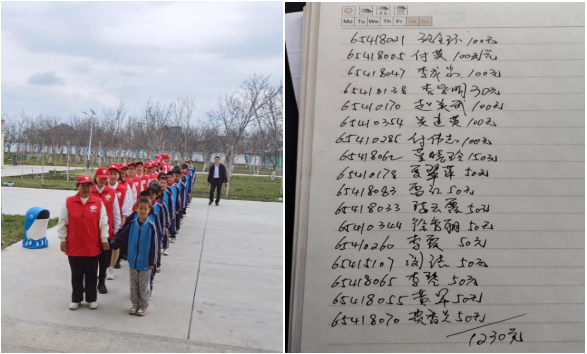 Mo Tu We Th Fr Sa Su
65418021 100元
65418005 付英 100元
65418047 100元
65410138 30元
65410170 100元
65410354 吴建英 100元
65410285 付伟志 100元
65418062 董晓玲 150元
65410178 夏翠萍 50元
65418083 雷红 50元
65418033 陆云霞 50元
65410344 徐秀丽 50元
65410260 李霞 50元
65415107 50元
65418065 50元
65418055 50元
65418070 50元
1230元